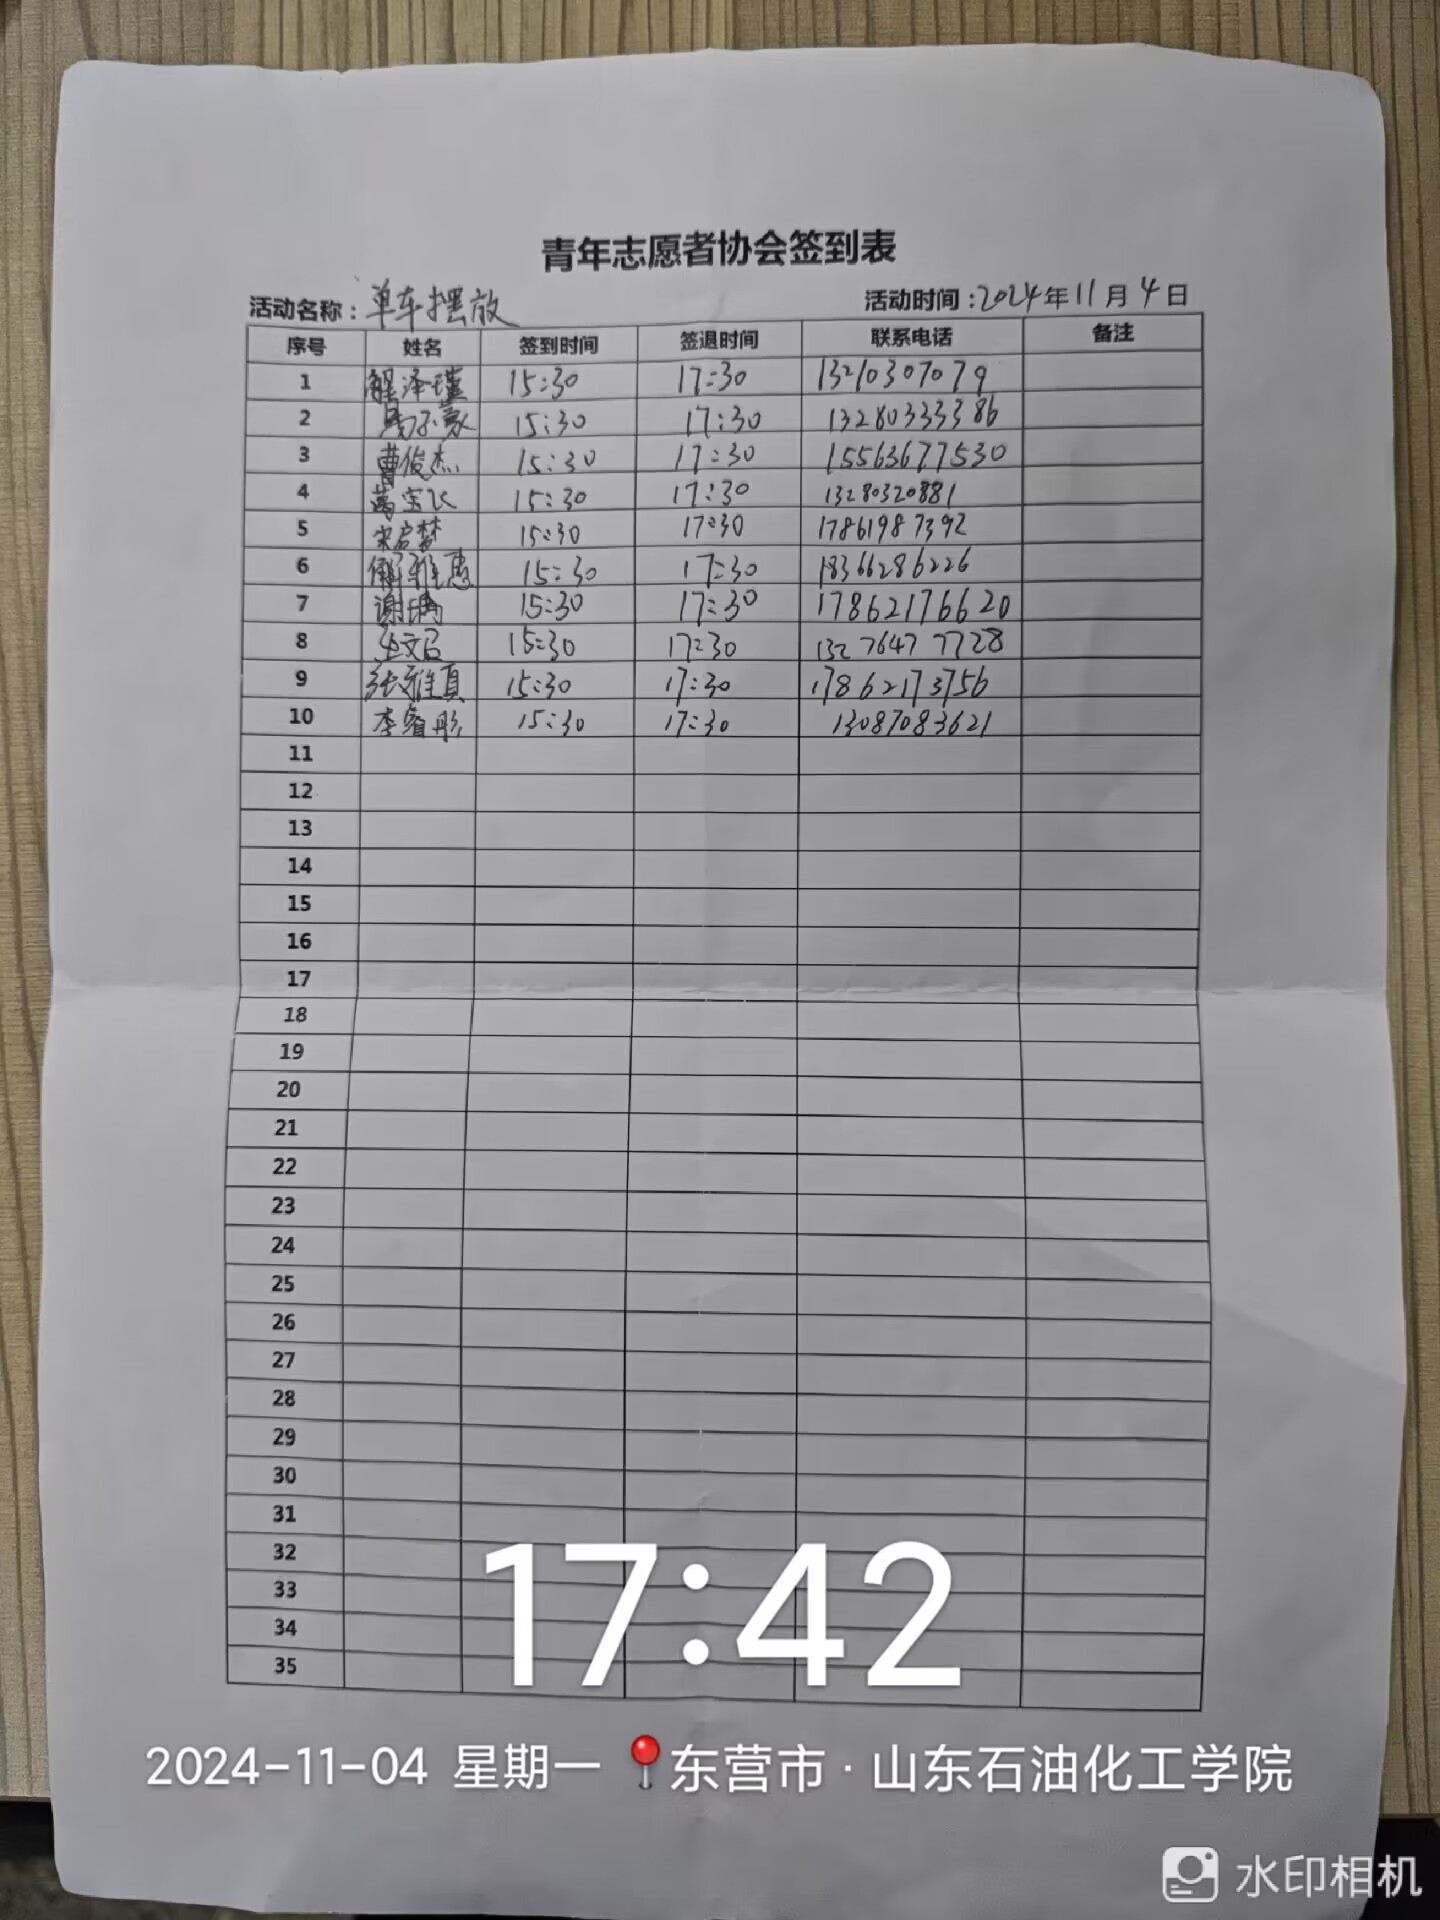 青年志愿者协会签到表
活动名称：单车摆放 活动时间：2024年11月4日
序号 姓名 签到时间 签退时间 联系电话 备注
1 解泽瑾 15:30 17:30 13210307079
2 15:30 17:30 13280333386
3 曹俊杰 15:30 17:30 15563677530
4 15:30 17:30 13280320881
5 宋启梦 15:30 17:30 17861987392
6 解雅惠 15:30 17:30 18366286226
7 15:30 17:30 17862176620
8 15:30 17:30 13276477728
9 张雅真 15:30 17:30 17862173756
10 李睿彤 15:30 17:30 13087083621
11
12
13
14
15
16
17
18
19
20
21
22
23
24
25
26
27
28
29
30
31
32
33
34
35
17:42
2024-11-04 星期一 东营市·山东石油化工学院
水印相机